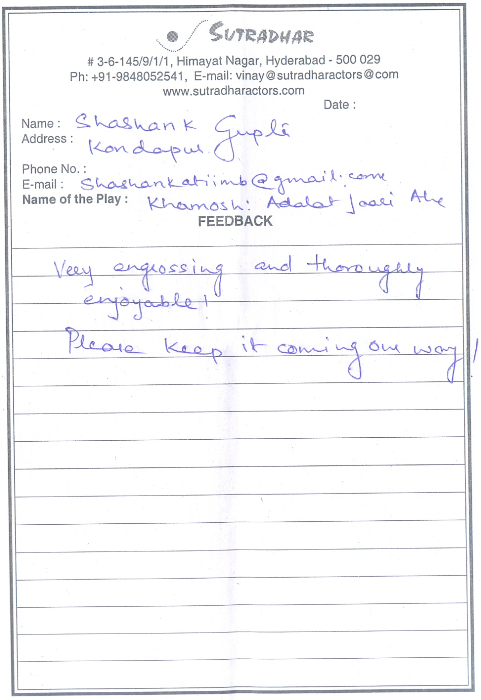 SUTRADHAR
# 3-6-145/9/1/1, Himayat Nagar, Hyderabad - 500 029
Ph: +91-9848052541, E-mail: vinay@sutradharactors@com
www.sutradharactors.com
Date :
Name : Shashank Gupta
Address : Kondapur
Phone No. :
E-mail : shashankatiimb@gmail.com
Name of the Play : Khamosh! Adalat Jaari Ahe
FEEDBACK
Very engrossing and thoroughly
enjoyable!
Please keep it coming our way!